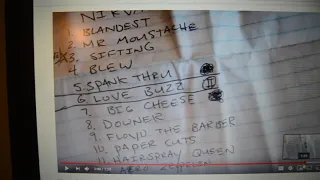 NIRVA
1. BLANDEST
2. MR MOUSTACHE
3. SIFTING
4. BLEW
5. SPANK THRU
6. LOVE BUZZ
7. BIG CHEESE
8. DOWNER
9. FLOYD THE BARBER
10. PAPER CUTS
11. HAIRSPRAY QUEEN